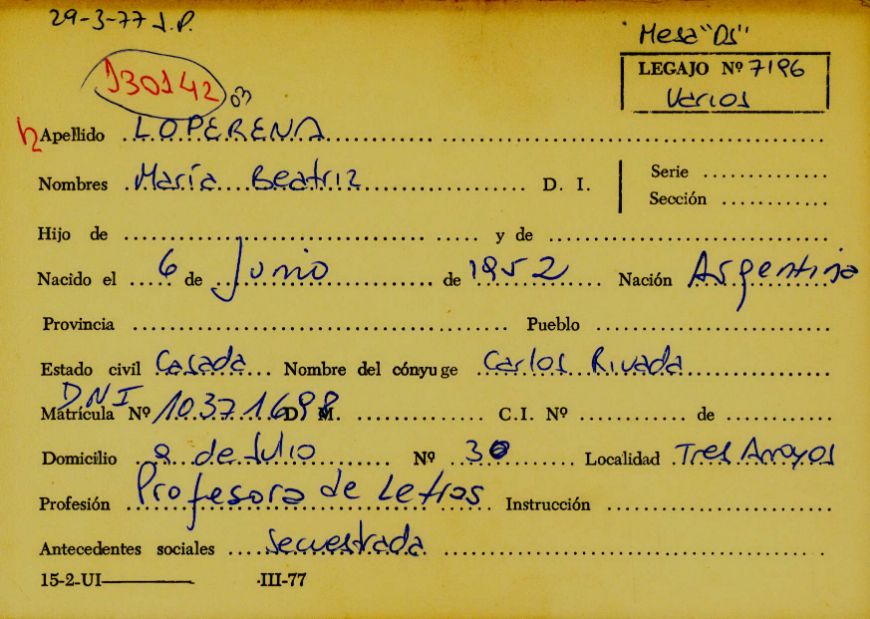 29-3-77 J.P.
Mesa "Ds"
LEGAJO Nº 7196
Varios
130142
03
Apellido LOPERENA
Nombres María Beatriz D. I. Serie
Sección
Hijo de y de
Nacido el 6 de Junio de 1952 Nación Argentina
Provincia Pueblo
Estado civil Casada Nombre del cónyuge Carlos Rivada
DNI
Matrícula Nº 10371698 D. M. C.I. Nº de
Domicilio 9 de Julio Nº 30 Localidad Tres Arroyos
Profesión Profesora de Letras Instrucción
Antecedentes sociales Secuestrada
15-2-UI III-77